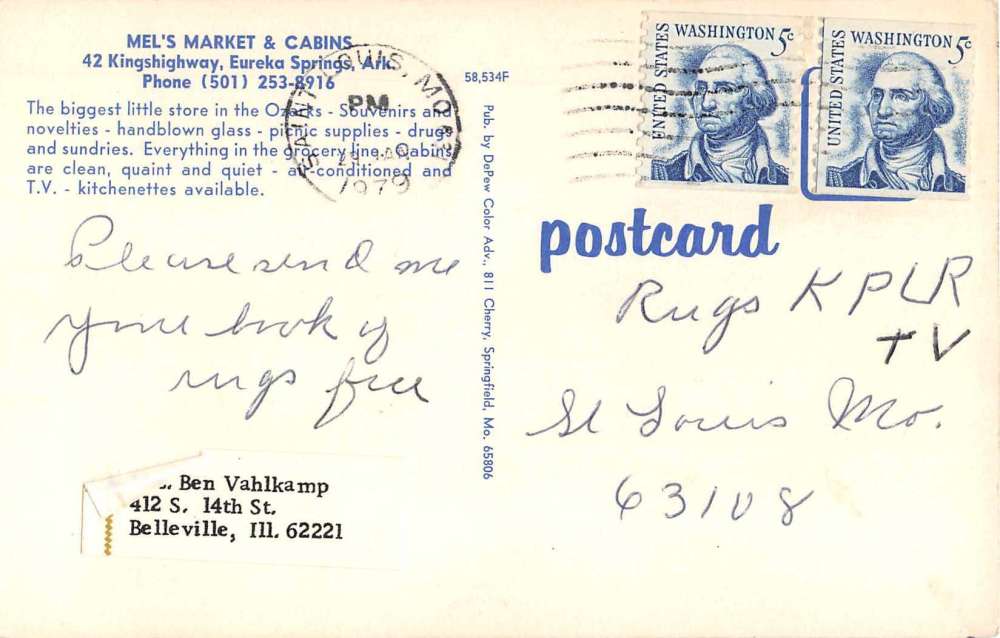 MEL'S MARKET & CABINS
42 Kingshighway, Eureka Springs, Ark.
Phone (501) 253-8916
The biggest little store in the Ozarks - Souvenirs and
novelties - handblown glass - picnic supplies - drugs
and sundries. Everything in the grocery line. Cabins
are clean, quaint and quiet - air-conditioned and
T.V. - kitchenettes available.
SAINT LOUIS, MO
PM
1979
58,534F
Pub. by DePew Color Adv., 811 Cherry, Springfield, Mo. 65806
UNITED STATES
WASHINGTON 5c
UNITED STATES
WASHINGTON 5c
postcard
Please send me
your book of
rugs free
Ben Vahlkamp
412 S. 14th St.
Belleville, Ill. 62221
Rugs KPLR
TV
St Louis Mo.
63108